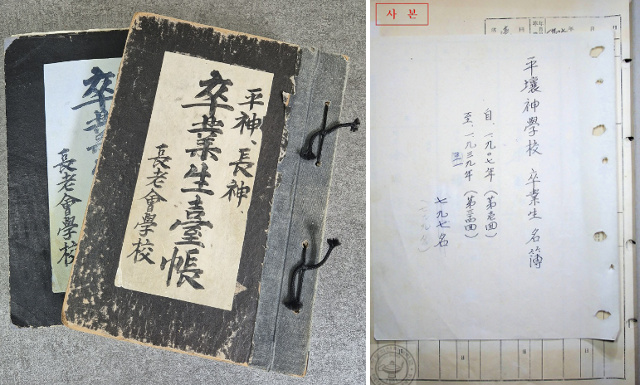 平神、長神
卒業生臺帳
長老會學校
卒業
長老會學校
사본
平壤神學校 卒業生 名簿
自、一九〇七年 (第壱回)
至、一九三九年
七九七名